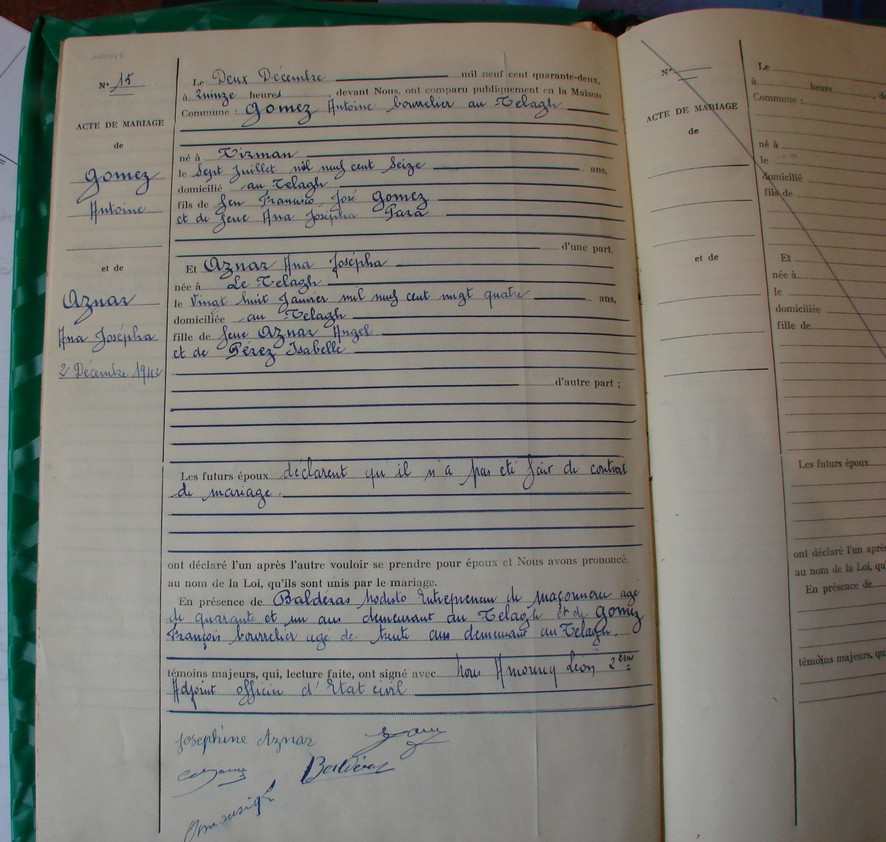 N° 15
ACTE DE MARIAGE
de
Gomez
Antoine
et de
Aznar
Ana Josépha
2 Décembre 1942
Le Deux Décembre mil neuf cent quarante-deux,
à Quinze heures, devant Nous, ont comparu publiquement en la Maison
Commune : Gomez Antoine bourrelier au Telagh
né à Tizman
le Sept Juillet mil neuf cent Seize ans,
domicilié au Telagh
fils de feu José Gomez
et de feue Ana Josépha
d'une part.
Et Aznar Ana Josépha
née à Le Telagh
le Vingt huit Janvier mil neuf cent vingt quatre ans,
domiciliée au Telagh
fille de feue Aznar Angel
et de Pérez Isabelle
d'autre part ;
Les futurs époux déclarent qu'il n'a pas eté fait de contrat
de mariage.
ont déclaré l'un après l'autre vouloir se prendre pour époux et Nous avons prononcé,
au nom de la Loi, qu'ils sont unis par le mariage.
En présence de Baldéras Modesto Entrepreneur de maçonnerie agé
de quarante et un ans demeurant au Telagh et de Gomez
François bourrelier agé de trente ans demeurant au Telagh.
témoins majeurs, qui, lecture faite, ont signé avec Nous Léon 2eme
Adjoint officier d'Etat civil
Josephine Aznar
Baldéras
N°
ACTE DE MARIAGE
de
et de
Le
à heure
Commune :
né à
le
domicilié
fils de
Et
née à
le
domiciliée
fille de
Les futurs époux
ont déclaré l'un après
au nom de la Loi, qu
En présence de
témoins majeurs, qui